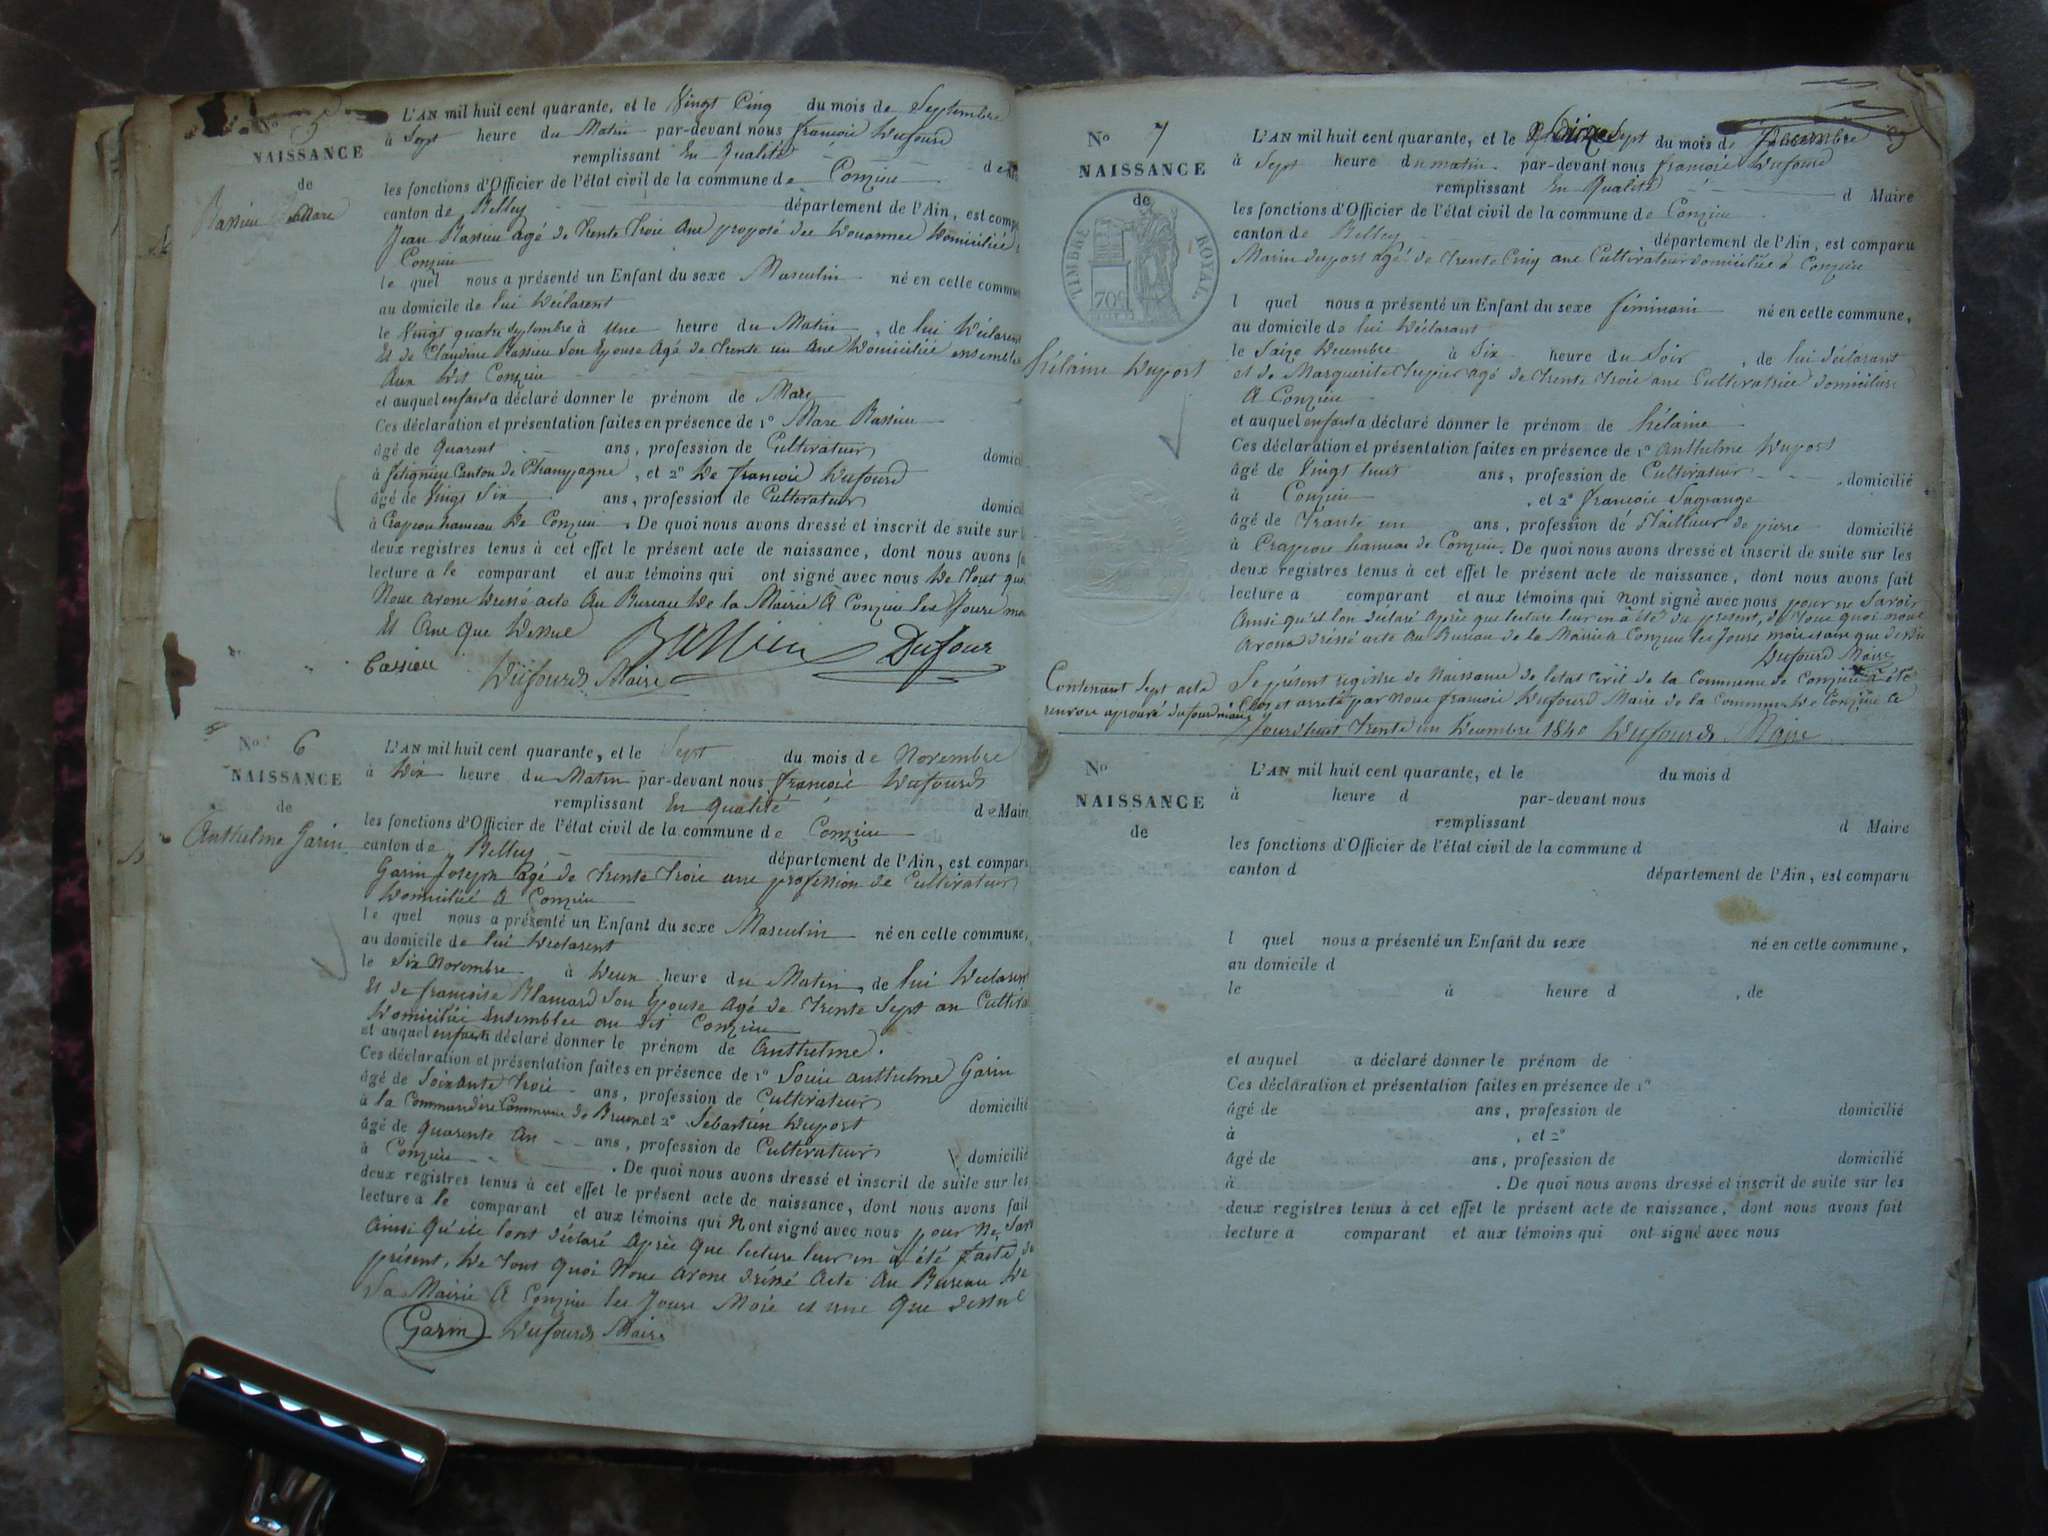 N° 5
NAISSANCE
de
Bassieu Marc
L'AN mil huit cent quarante, et le Vingt Cinq du mois de Septembre
à Sept heure du Matin par-devant nous françois Dufourd
remplissant En Qualité de
les fonctions d'Officier de l'état civil de la commune de Conzieu
canton de Belley département de l'Ain, est compa
Jean Bassieu agé de trente trois ans préposé des Douannes Domicilié
Conzieu
le quel nous a présenté un Enfant du sexe Masculin né en cette commune
au domicile de lui Déclarent
le Vingt quatre septembre à Une heure du Matin, de lui Déclarent
Et de Claudine Bassieu Son Epouse Agé de trente un ans Domiciliés ensembles
Aux Dit Conzieu
et auquel enfant a déclaré donner le prénom de Marc
Ces déclaration et présentation faites en présence de 1° Marc Bassieu
âgé de Quarent ans, profession de Cultivateur domici
à Canton de Champagne, et 2° De françois Dufourd
âgé de Vingt Six ans, profession de Cultivateur domici
à Crapeou hameau De Conzieu. De quoi nous avons dressé et inscrit de suite sur l
deux registres tenus à cet effet le présent acte de naissance, dont nous avons fa
lecture a le comparant et aux témoins qui ont signé avec nous De tout quoi
Nous avons Dressé acte Au Bureau De la Mairie A Conzieu les Jours moi
Et ans Que Dessus
Bassieu Dufour
bassieu Dufourd Maire
N° 6
NAISSANCE
de
Anthelme Garin
L'AN mil huit cent quarante, et le Sept du mois de Novembre
à Dix heure du Matin par-devant nous françois Dufourd
remplissant En qualité de Maire
les fonctions d'Officier de l'état civil de la commune de Conzieu
canton de Belley département de l'Ain, est comparu
Garin Joseph agé de trente trois ans profession de Cultivateur
Domicilié A Conzieu
le quel nous a présenté un Enfant du sexe Masculin né en cette commune,
au domicile de lui Déclarent
le Six Novembre à Deux heure du Matin, de lui Déclarent
Et de françoise Blanard Son Epouse Agé de trente Sept an Cultiva
Domiciliés Ensembles au dit Conzieu
et auquel enfant a déclaré donner le prénom de Anthelme.
Ces déclaration et présentation faites en présence de 1° Louis anthelme Garin
âgé de Soixante trois ans, profession de Cultivateur domicilié
à la Commune de et 2° Sébastien Duport
âgé de quarente An ans, profession de Cultivateur domicilié
à Conzieu. De quoi nous avons dressé et inscrit de suite sur les
deux registres tenus à cet effet le présent acte de naissance, dont nous avons fait
lecture a le comparant et aux témoins qui Nont signé avec nous pour Ne Savoir
Ainsi Qu'ils lont déclaré Après Que lecture leur en à été faite du
présent, De tout Quoi Nous avons dréssé Acte Au Bureau De
la Mairie A Conzieu les Jours Mois et ans Que dessus
Garin Dufourd Maire
N° 7
NAISSANCE
de
TIMBRE ROYAL
70c
hélaine Duport
L'AN mil huit cent quarante, et le Sept du mois de Décembre
à Sept heure du matin par-devant nous françois Dufourd
remplissant En Qualité d Maire
les fonctions d'Officier de l'état civil de la commune de Conzieu
canton de Belley département de l'Ain, est comparu
Marin duport agé de trente Cinq ans Cultivateur domicilié à Conzieu
l quel nous a présenté un Enfant du sexe féminain né en cette commune,
au domicile de lui Déclarant
le Saize Décembre à Six heure du Soir, de lui déclarant
et de Marguerite agé de trente trois ans Cultivatrice domiciliée
A Conzieu
et auquel enfant a déclaré donner le prénom de hélaine
Ces déclaration et présentation faites en présence de 1° Anthelme Duport
âgé de Vingt huit ans, profession de Cultivateur domicilié
à Conzieu, et 2° françois Lagrange
âgé de Trante un ans, profession de Tailleur de pierre domicilié
à Crapeou hameau de Conzieu. De quoi nous avons dressé et inscrit de suite sur les
deux registres tenus à cet effet le présent acte de naissance, dont nous avons fait
lecture a comparant et aux témoins qui Nont signé avec nous pour ne Savoir
Ainsi qu'il lon déclaré Après que lecture leur en à été du présent, de tout quoi nous
avons dréssé acte Au Bureau de la Mairie à Conzieu les Jours mois et ans que dessus
Dufourd Maire
Contenant Sept acte
renvoi aprouvé dufourd maire
Le présent régistre de Naissance de letat Civil de la Commune de Conzieu à été
Clos et arreté par Nous françois Dufourd Maire de la Commune De Conzieu ce
Jourdhuit trente un Décembre 1840 Dufourd Maire
N°
NAISSANCE
de
L'AN mil huit cent quarante, et le du mois d
à heure d par-devant nous
remplissant d Maire
les fonctions d'Officier de l'état civil de la commune d
canton d département de l'Ain, est comparu
l quel nous a présenté un Enfant du sexe né en cette commune,
au domicile d
le à heure d , de
et auquel a déclaré donner le prénom de
Ces déclaration et présentation faites en présence de 1°
âgé de ans, profession de domicilié
à , et 2°
âgé de ans, profession de domicilié
à . De quoi nous avons dressé et inscrit de suite sur les
deux registres tenus à cet effet le présent acte de naissance, dont nous avons fait
lecture a comparant et aux témoins qui ont signé avec nous